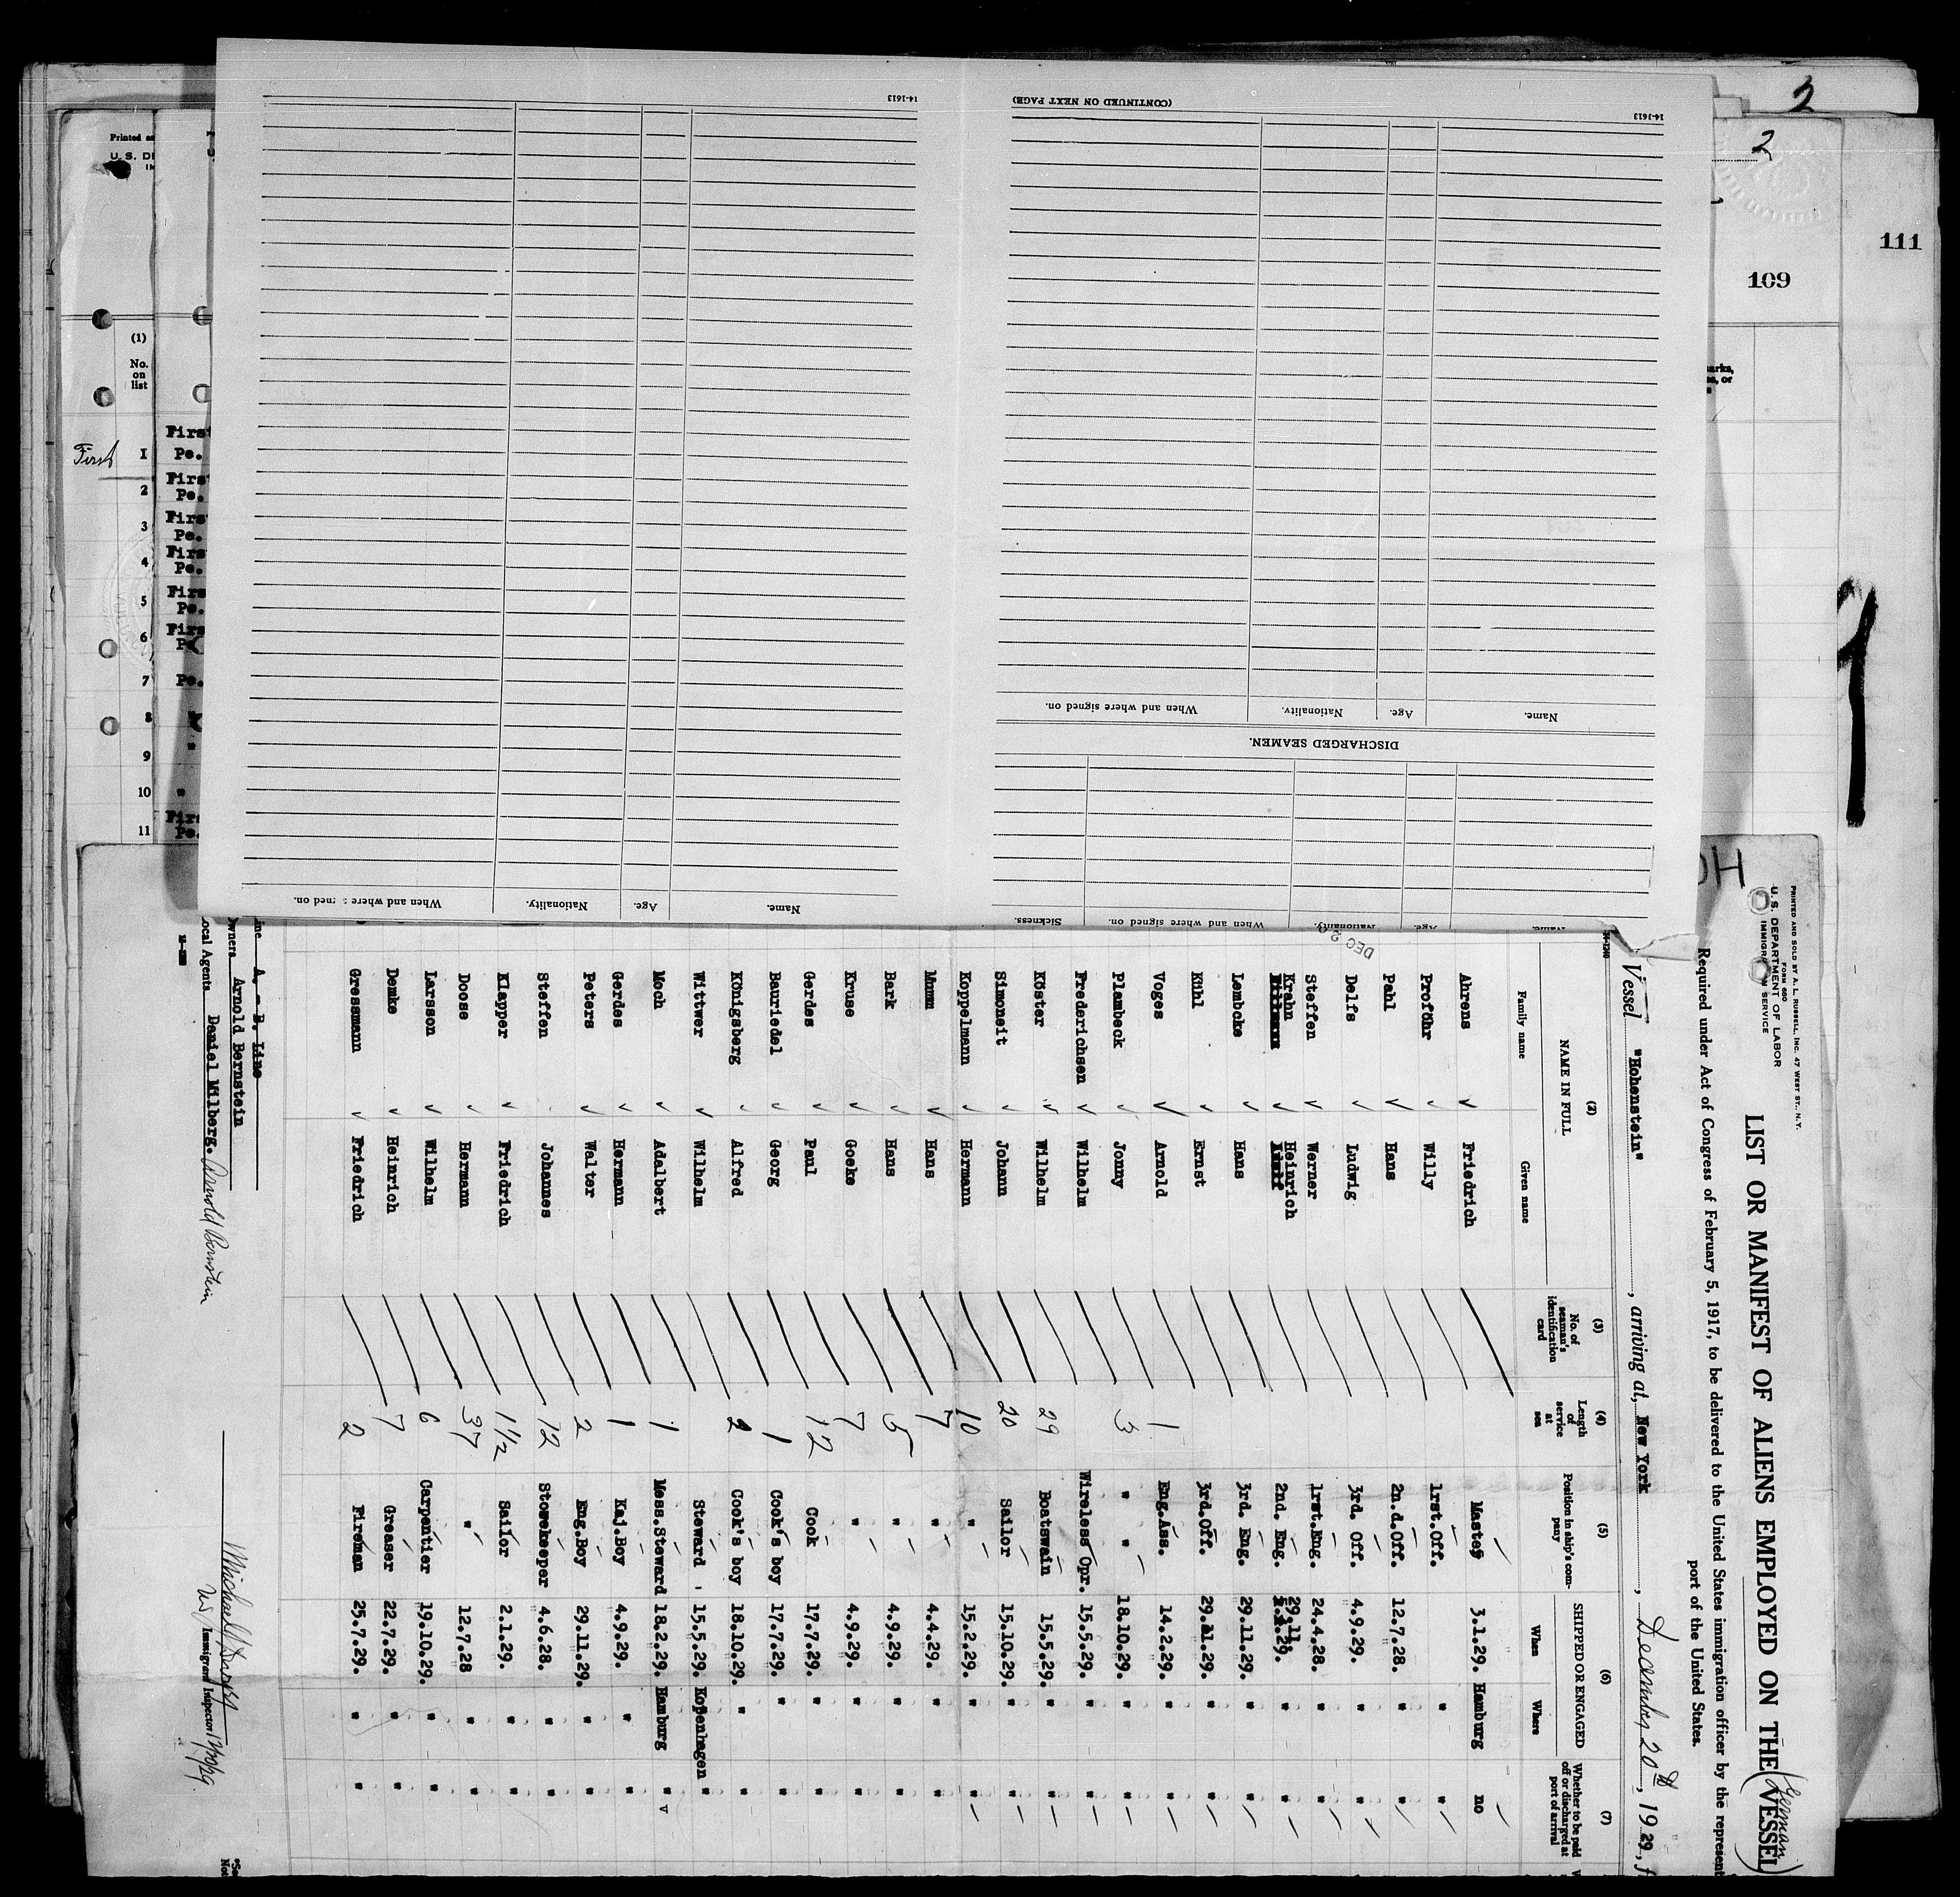 3
2
111
109
Printed
U. S.
(1)
No.
on
list
First
1
2
3
4
5
6
7
8
9
10
11
First
Pe.
First
Pe.
First
Pe.
Pe.
Pe.
Pe.
14-1613
(CONTINUED ON NEXT PAGE)
14-1613
When and where signed on.
Nationality.
Age.
Name.
DISCHARGED SEAMEN.
Sickness.
When and where signed on.
Nationality.
Age.
Name.
When and where signed on.
Nationality.
Age.
Name.
PRINTED AND SOLD BY A. L. RUSSELL, INC. 47 WEST ST., N.Y.
FORM 680
U. S. DEPARTMENT OF LABOR
SERVICE
LIST OR MANIFEST OF ALIENS EMPLOYED ON THE VESSEL
(German)
Required under Act of Congress of February 5, 1917, to be delivered to the United States immigration officer by the represent
port of the United States.
Vessel "Hohenstein", arriving at, New York, December 20th, 1929, f
DEC 20
(2) (3) (4) (5) (6) (7)
NAME IN FULL
Family name Given name
No. of seaman's identification card
Length of service at sea
Position in ship's company
SHIPPED OR ENGAGED
When Where
Whether to be paid off or discharged at port of arrival
Ahrens Friedrich Master 3.1.29. Hamburg no
Proföhr Willy 1rst.Off. " "
Pahl Hans 2n.d.Off. 12.7.28. " "
Delfs Ludwig 3rd. Off. 4.9.29. " "
Steffen Werner 1rst.Eng. 24.4.28. " "
Krahn Heinrich 2nd. Eng. 29.11. " "
Lembcke Hans 3rd. Eng. 29.11.29. " "
Kühl Ernst 3rd.Off. 29.11.29. " "
Voges Arnold 1 Eng.Ass. 14.2.29. " "
Plambeck Jonny 3 " " 18.10.29. " "
Frederichsen Wilhelm Wireless Opr. 15.5.29. " "
Köster Wilhelm 29 Boatswain 15.5.29. " "
Simoneit Johann 20 Sailor 15.10.29. " "
Koppelmann Hermann 10 " 15.2.29. " "
Mumm Hans 7 " 4.4.29. " "
Bark Hans 5 " 4.9.29. " "
Kruse Goeke 7 " 4.9.29. " "
Gerdes Paul 12 Cook 17.7.29. " "
Bauriedel Georg 1 Cook's boy 17.7.29. " "
Königsberg Alfred 2 Cook's boy 18.10.29. " "
Wittwer Wilhelm Steward 15.5.29. Kopenhagen "
Moch Adalbert 1 Mess.Steward 18.2.29. Hamburg "
Gerdes Hermann 1 Kaj.Boy 4.9.29. " "
Peters Walter 2 Eng.Boy 29.11.29. " "
Steffen Johannes 12 Storekeeper 4.6.28. " "
Klapper Friedrich 1½ Sailor 2.1.29. " "
Doose Hermann 37 " 12.7.28 " "
Larsson Wilhelm 6 Carpentier 19.10.29. " "
Demke Heinrich 7 Greaser 22.7.29. " "
Gressmann Friedrich 2 Fireman 25.7.29. " "
A. - B. Line
Owners Arnold Bernstein
Local Agents Daniel Milberg. Arnold Bernstein
Immigrant Inspector 12/20/29